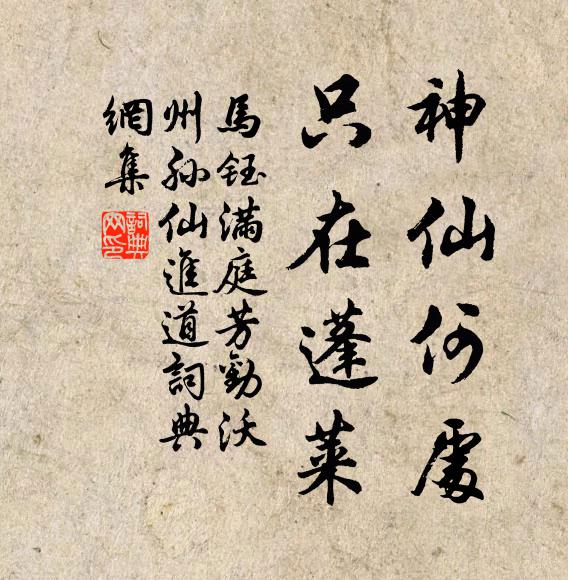 神仙何處
只在蓬萊
馬鈺滿庭芳勸沃
州孙仙進道詞典
網集
詞典
网印